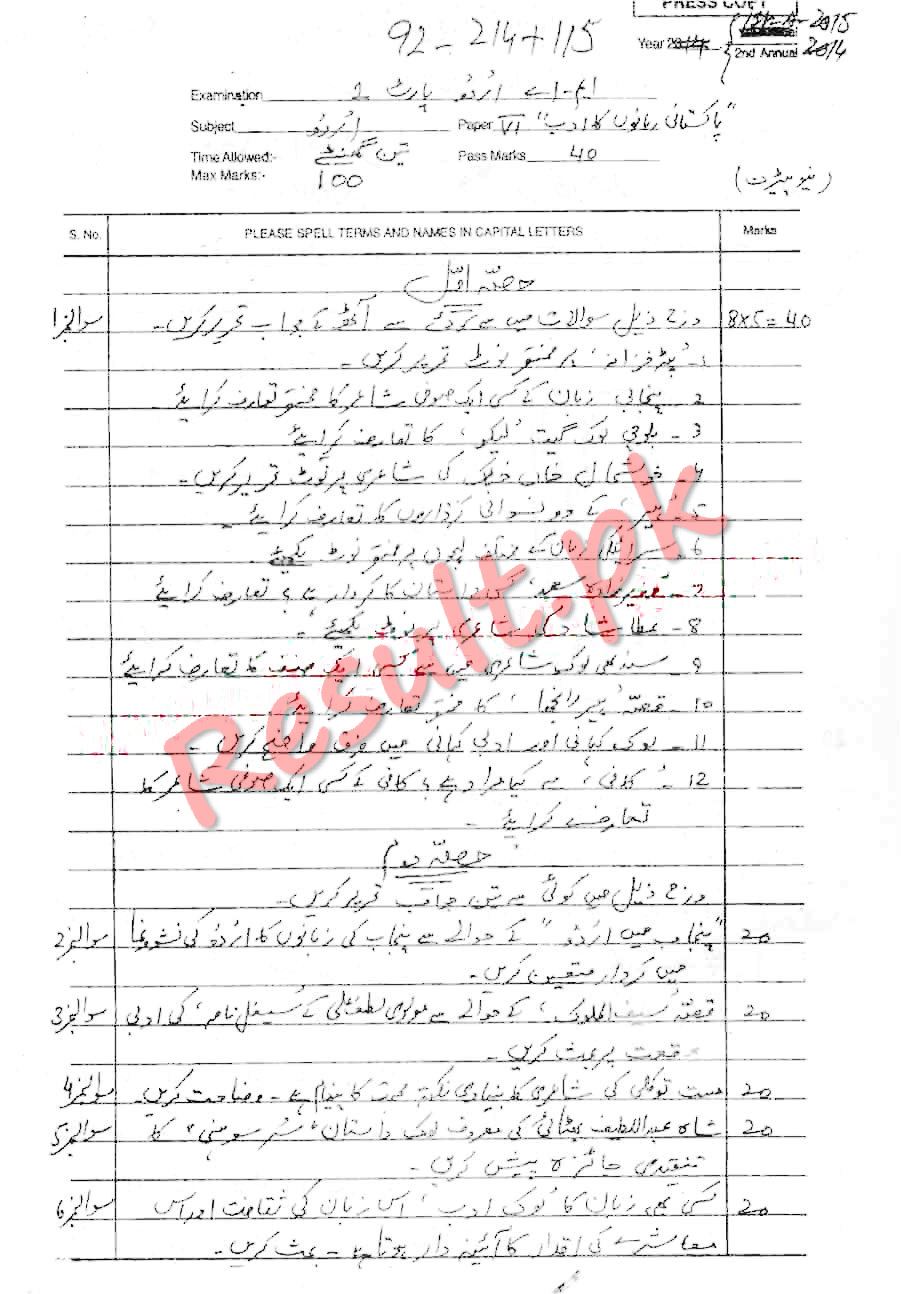 PRESS COPY
92-214+115
Year 2014
1st-A-2015
2nd Annual 2014
Examination ایم-اے اُردُو پارٹ 2
Subject اُردُو Paper VI "پاکستانی زبانوں کا ادب"
Time Allowed:- تین گھنٹے Pass Marks 40
Max Marks:- 100 (نیو پیٹرن)
S. No. PLEASE SPELL TERMS AND NAMES IN CAPITAL LETTERS Marks
حصّہ اوّل
سوال نمبر 1 درج ذیل سوالات میں سے کوئی سے آٹھ کے جواب تحریر کریں۔ 8x5=40
1- پر مختصر نوٹ تحریر کریں۔
2- پنجابی زبان کے کسی ایک صوفی شاعر کا مختصر تعارف کرایئے
3- بلوچی لوک گیت 'لیکو' کا تعارف کرایئے
4- خوشحال خاں خٹک کی شاعری پر نوٹ تحریر کریں۔
5- کے دو نسوانی کرداروں کا تعارف کرایئے۔
6- سرائیکی زبان کے مختلف لہجوں پر مختصر نوٹ لکھیئے۔
7- کس داستان کا کردار ہے؟ تعارف کرایئے
8- عطا شاد کی شاعری پر نوٹ لکھیئے۔
9- سندھی لوک شاعری میں سے کسی ایک صنف کا تعارف کرایئے
10- قصّہ 'ہیر رانجھا' کا مختصر تعارف کرایئے
11- لوک کہانی اور ادبی کہانی میں فرق واضح کریں۔
12- 'کافی' سے کیا مراد ہے؟ کافی کے کسی ایک صوفی شاعر کا
تعارف کرایئے۔
حصّہ دوم
درج ذیل میں کوئی سے تین جواب تحریر کریں۔
سوال نمبر 2 "پنجاب میں اُردُو" کے حوالے سے پنجاب کی زبانوں کا اُردُو کی نشوونما 20
میں کردار متعین کریں۔
سوال نمبر 3 قصّہ 'سیف الملوک' کے حوالے سے مولوی لطف علی کے 'سیفل نامہ' کی ادبی 20
وقعت پر بحث کریں۔
سوال نمبر 4 مست توکلی کی شاعری کا بنیادی نکتہ محبت کا پیغام ہے۔ وضاحت کریں۔ 20
سوال نمبر 5 شاہ عبداللطیف بھٹائی کی معروف لوک داستان 'سُر سوہنی' کا 20
تنقیدی جائزہ پیش کریں۔
سوال نمبر 6 کسی بھی زبان کا 'لوک ادب' اس زبان کی ثقافت اور اس 20
معاشرے کی اقدار کا آئینہ دار ہوتا ہے۔ بحث کریں۔
Result.pk